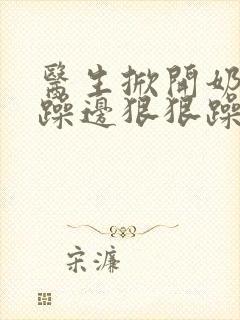 醫生掀開奶
躁邊狠狠躁
宋濂